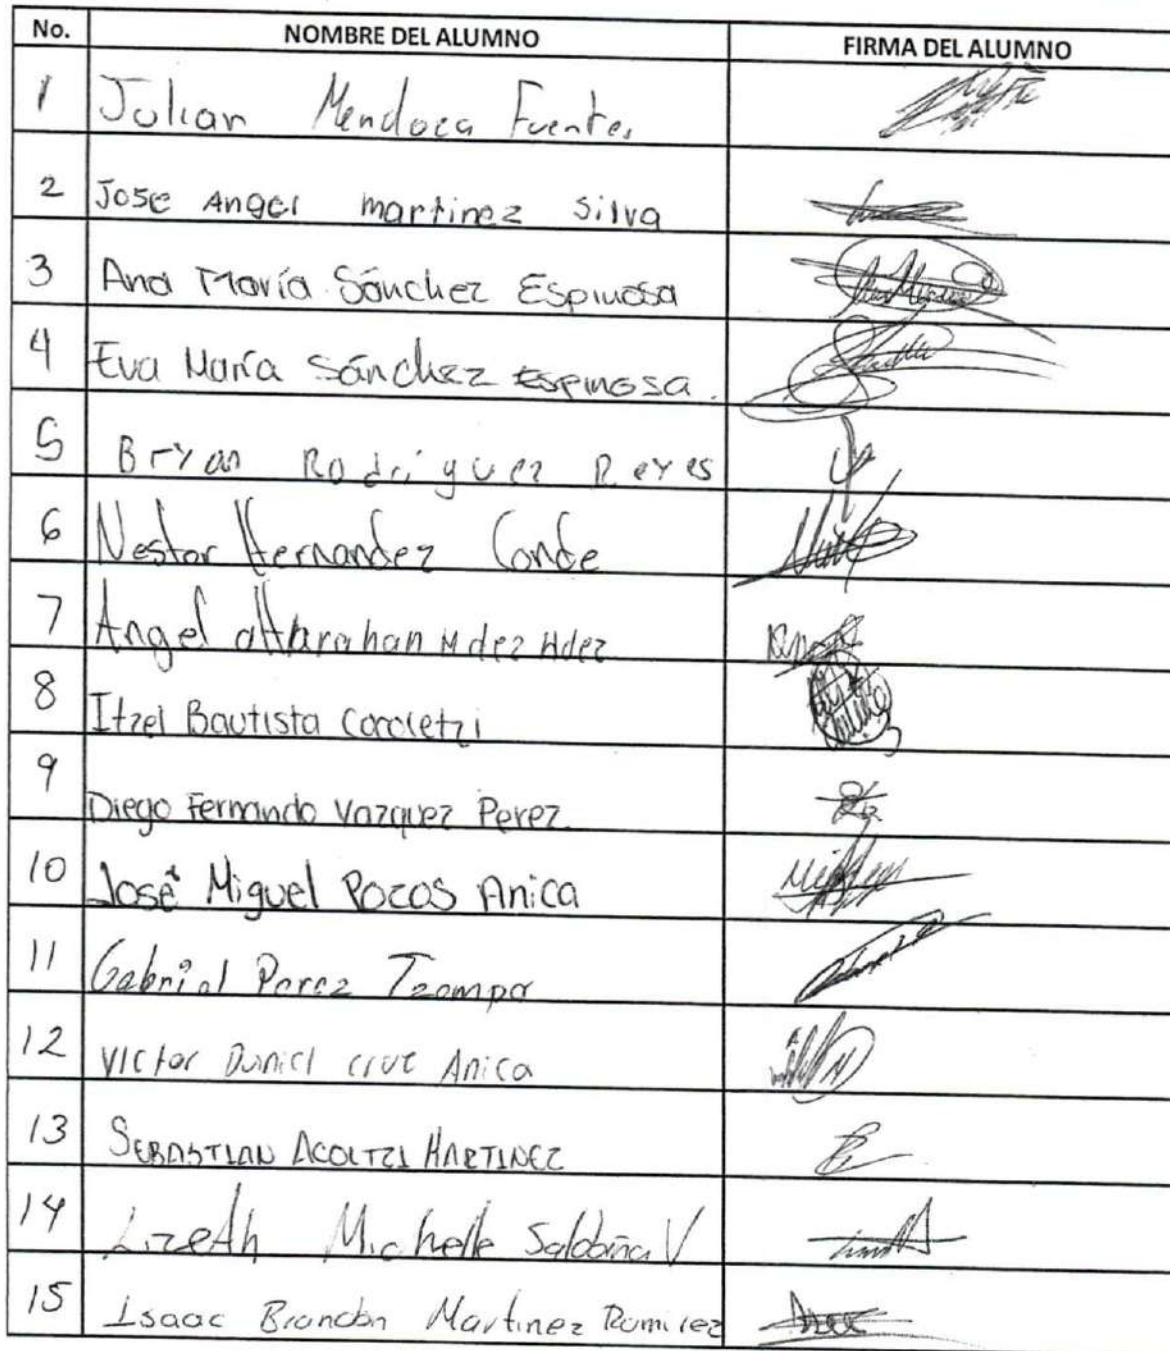 No. NOMBRE DEL ALUMNO FIRMA DEL ALUMNO
1 Julian Mendoza Fuentes
2 Jose Angel martinez Silva
3 Ana María Sánchez Espinosa
4 Eva María Sánchez Espinosa.
5 Bryan Rodriguez Reyes
6 Nestor Hernandez Conde
7 Angel Abrahan Hdez Hdez
8 Itzel Bautista Cocoletzi
9 Diego Fernando Vazquez Perez
10 José Miguel Pozos Anica
11 Gabriel Perez Tzompa
12 Victor Daniel cruz Anica
13 SEBASTIAN ACOLTZI MARTINEZ
14 Lizeth Michelle Saldaña V
15 Isaac Brandon Martinez Ramirez